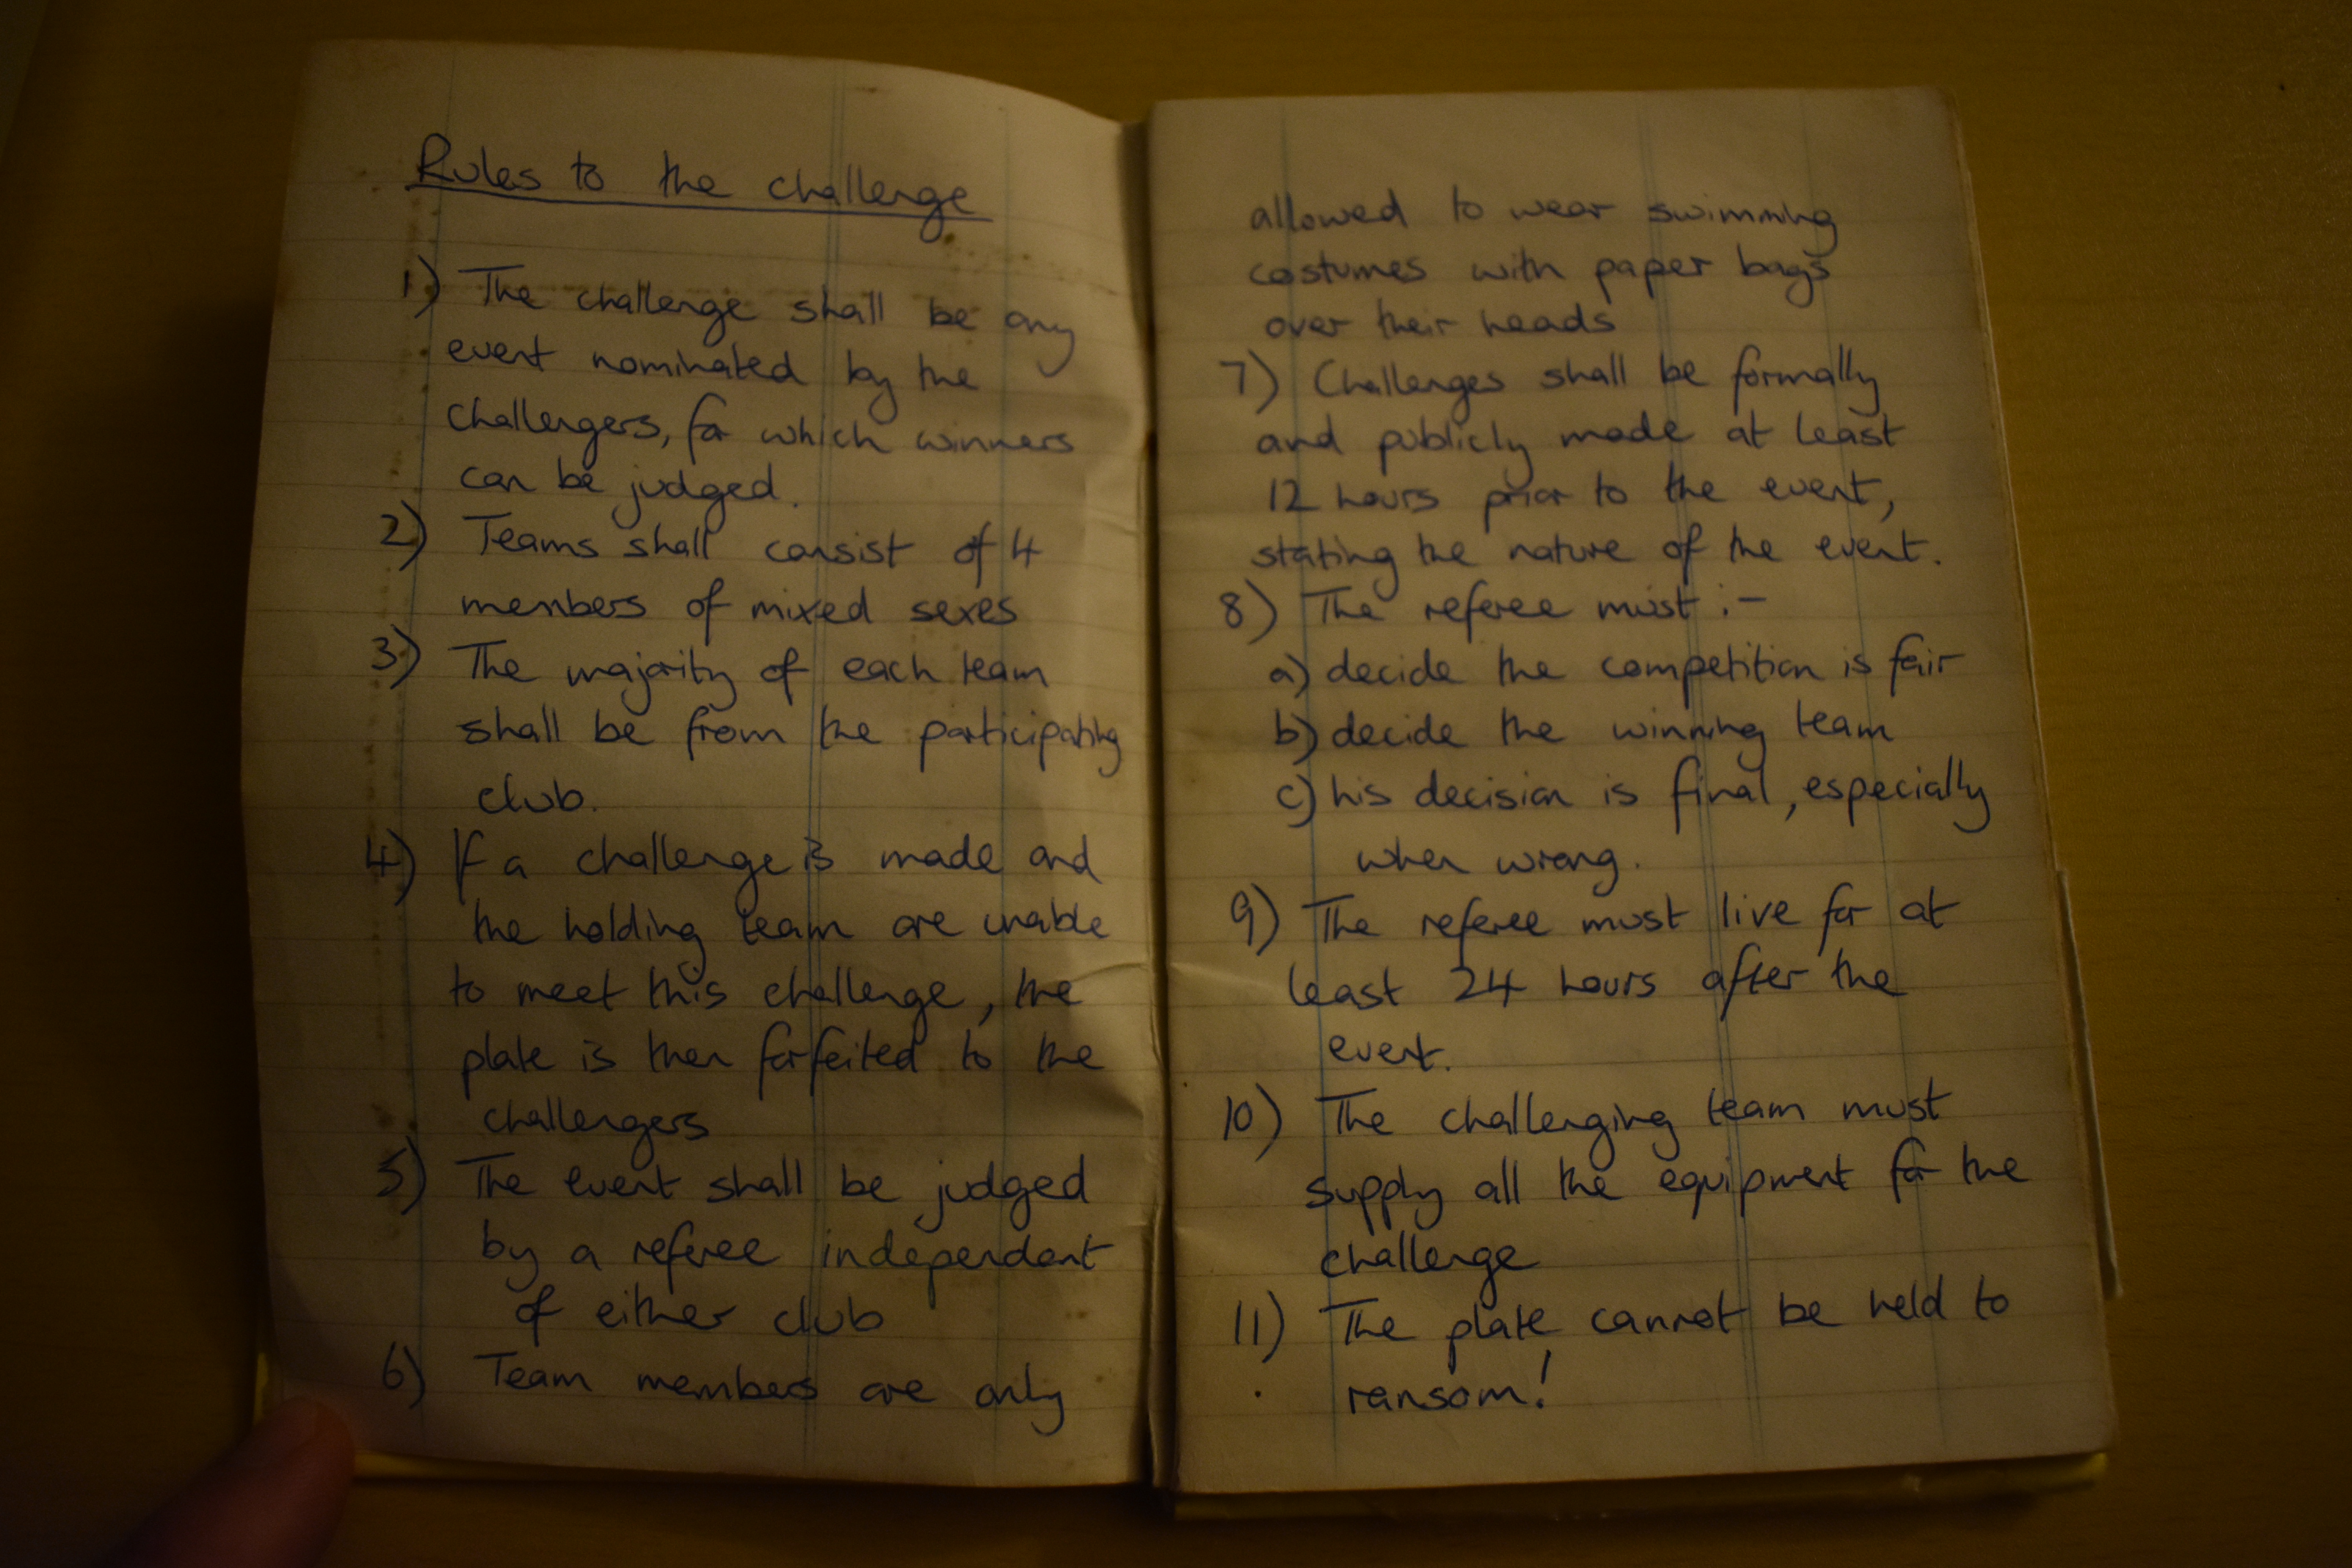 Rules to the challenge
1) The challenge shall be any
event nominated by the
challengers, for which winners
can be judged.
2) Teams shall consist of 4
members of mixed sexes
3) The majority of each team
shall be from the participating
club.
4) If a challenge is made and
the holding team are unable
to meet this challenge, the
plate is then forfeited to the
challengers
5) The event shall be judged
by a referee independant
of either club
6) Team members are only
allowed to wear swimming
costumes with paper bags
over their heads
7) Challenges shall be formally
and publicly made at least
12 hours prior to the event,
stating the nature of the event.
8) The referee must :-
a) decide the competition is fair
b) decide the winning team
c) his decision is final, especially
when wrong.
9) The referee must live for at
least 24 hours after the
event.
10) The challenging team must
supply all the equipment for the
challenge
11) The plate cannot be held to
ransom!